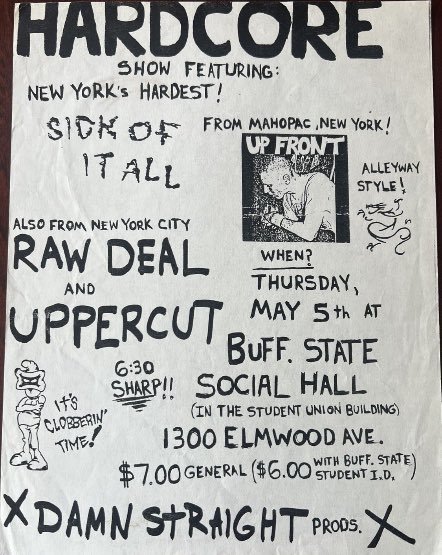 HARDCORE
SHOW FEATURING:
NEW YORK'S HARDEST!
SICK OF
IT ALL
FROM MAHOPAC, NEW YORK!
UP FRONT
ALLEYWAY
STYLE!
ALSO FROM NEW YORK CITY
RAW DEAL
AND
UPPERCUT
WHEN?
THURSDAY,
MAY 5th AT
BUFF. STATE
SOCIAL HALL
(IN THE STUDENT UNION BUILDING)
6:30
SHARP!!
IT'S
CLOBBERIN'
TIME!
1300 ELMWOOD AVE.
$7.00 GENERAL ($6.00 WITH BUFF. STATE
STUDENT I.D.)
X DAMN STRAIGHT PRODS. X